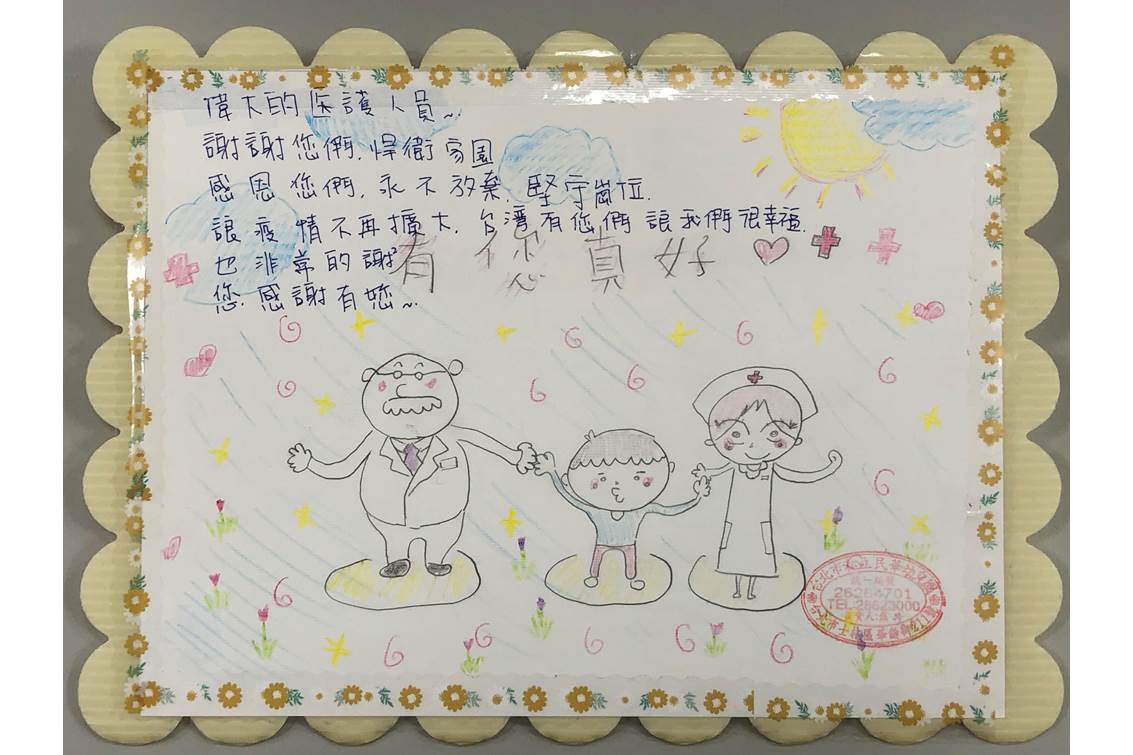 偉大的医護人員~
謝謝您們,悍衛家園
感恩您們,永不放棄,堅守崗位.
讓疫情不再擴大,台灣有您們讓我們很幸福.
也非常的謝
您.感謝有您~
有您真好
台北市
民華
26284701
TEL: